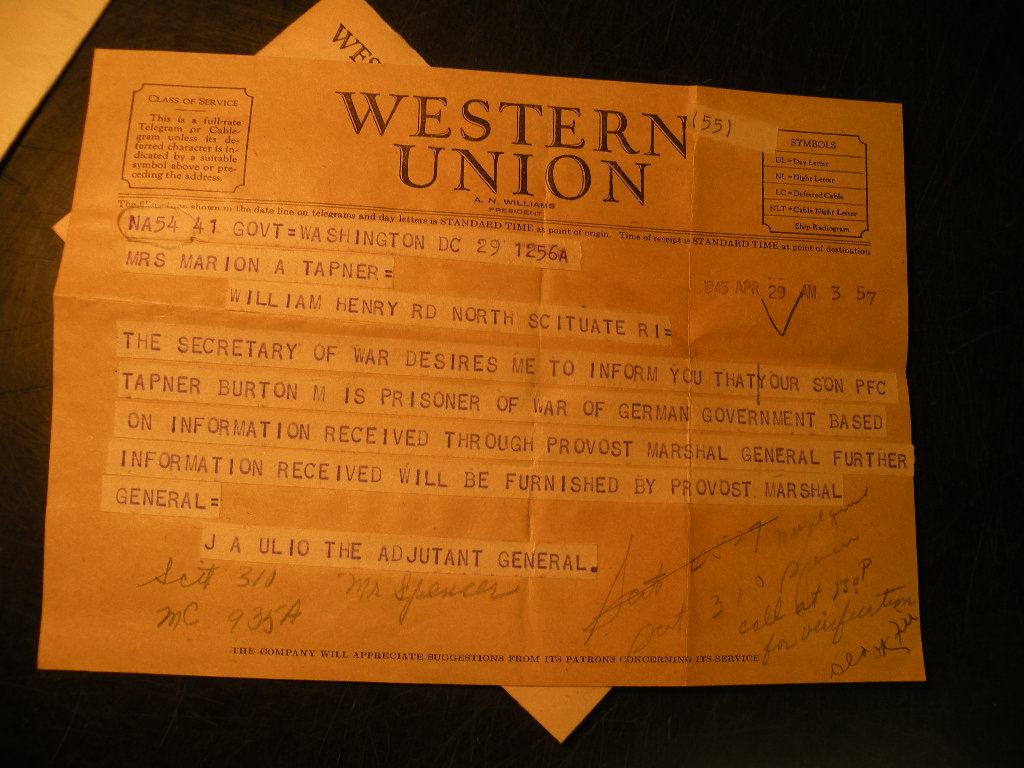 WES
CLASS OF SERVICE
This is a full-rate
Telegram or Cable-
gram unless its de-
ferred character is in-
dicated by a suitable
symbol above or pre-
ceding the address.
WESTERN
UNION
(55)
A. N. WILLIAMS
PRESIDENT
SYMBOLS
DL=Day Letter
NL=Night Letter
LC=Deferred Cable
NLT=Cable Night Letter
Ship Radiogram
The shown in the date line on telegrams and day letters is STANDARD TIME at point of origin. Time of receipt is STANDARD TIME at point of destination
NA54 41 GOVT=WASHINGTON DC 29 1256A
MRS MARION A TAPNER=
1945 APR 29 AM 3 57
WILLIAM HENRY RD NORTH SCITUATE RI=
THE SECRETARY OF WAR DESIRES ME TO INFORM YOU THAT YOUR SON PFC
TAPNER BURTON M IS PRISONER OF WAR OF GERMAN GOVERNMENT BASED
ON INFORMATION RECEIVED THROUGH PROVOST MARSHAL GENERAL FURTHER
INFORMATION RECEIVED WILL BE FURNISHED BY PROVOST MARSHAL
GENERAL=
J A ULIO THE ADJUTANT GENERAL.
Scit 310 Mr Spencer
MC 935A
310 Spencer
call at 130P
for verification
THE COMPANY WILL APPRECIATE SUGGESTIONS FROM ITS PATRONS CONCERNING ITS SERVICE